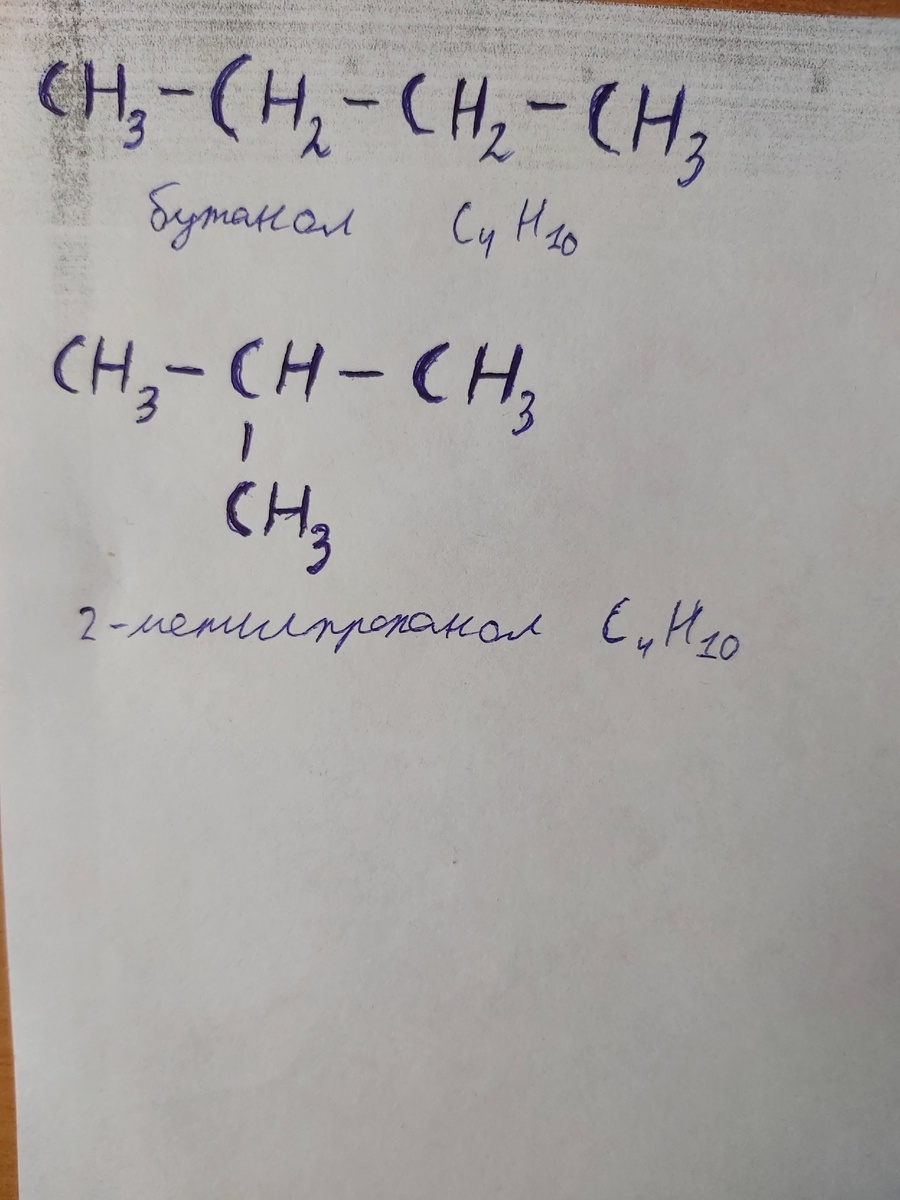 CH₃ – CH₂ – CH₂ – CH₃
бутанол C₄H₁₀
CH₃ – CH – CH₃
|
CH₃
2-метилпропанол C₄H₁₀